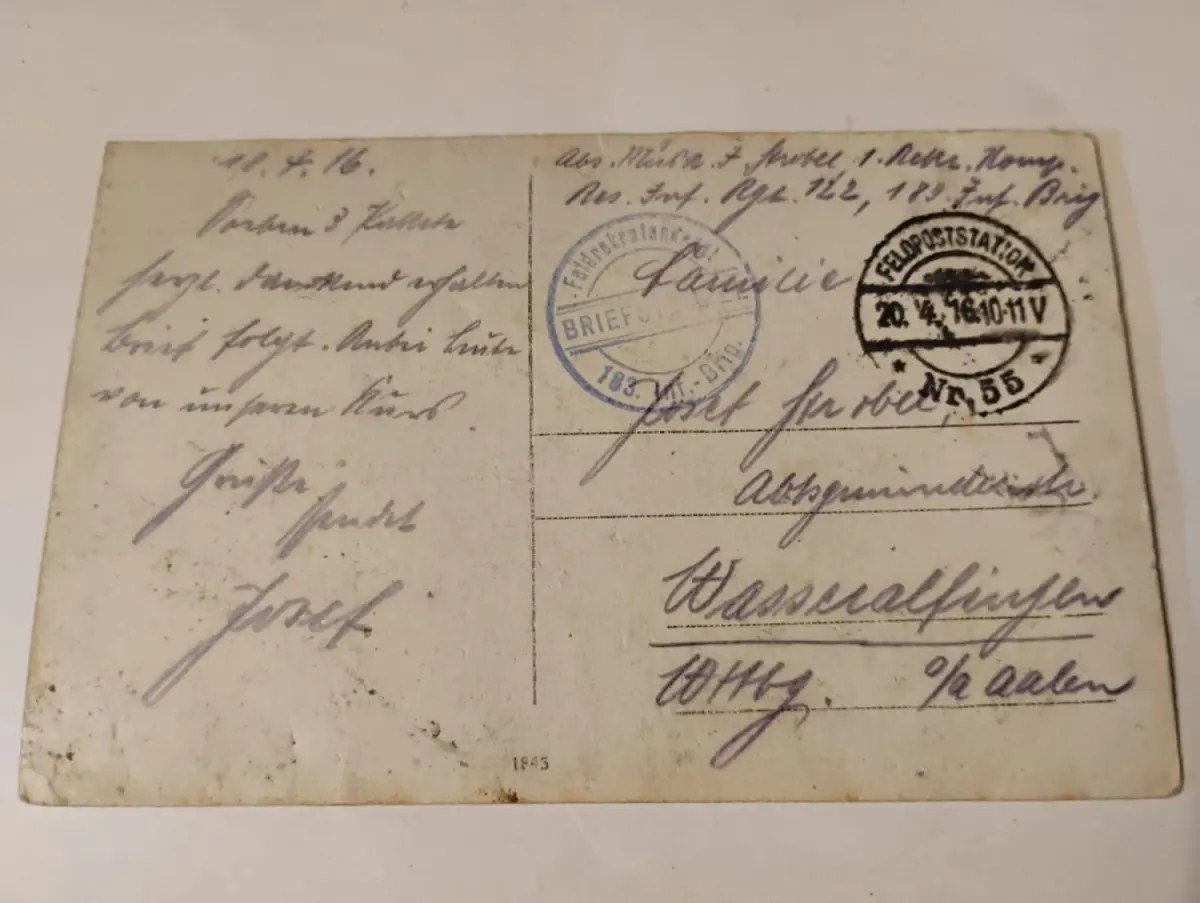 18. 4. 16.
Soeben 3 Pakete
herzl. dankend erhalten
Brief folgt. Anbei Leute
von unserem Kurs.
Grüße
sendet
Josef
Abs. Musk. J. Strobel, 1. Rekr. Komp.
Res. Inf. Rgt. 122, 183. Inf. Brig
Feldrekrutendepot
BRIEFSTEMPEL
183. Inf.-Brig.
FELDPOSTSTATION
20. 4. 16. 10-11 V
* Nr. 55 *
Familie
Josef Strobel,
Wasseralfingen
Wttbg. O/A Aalen
1843